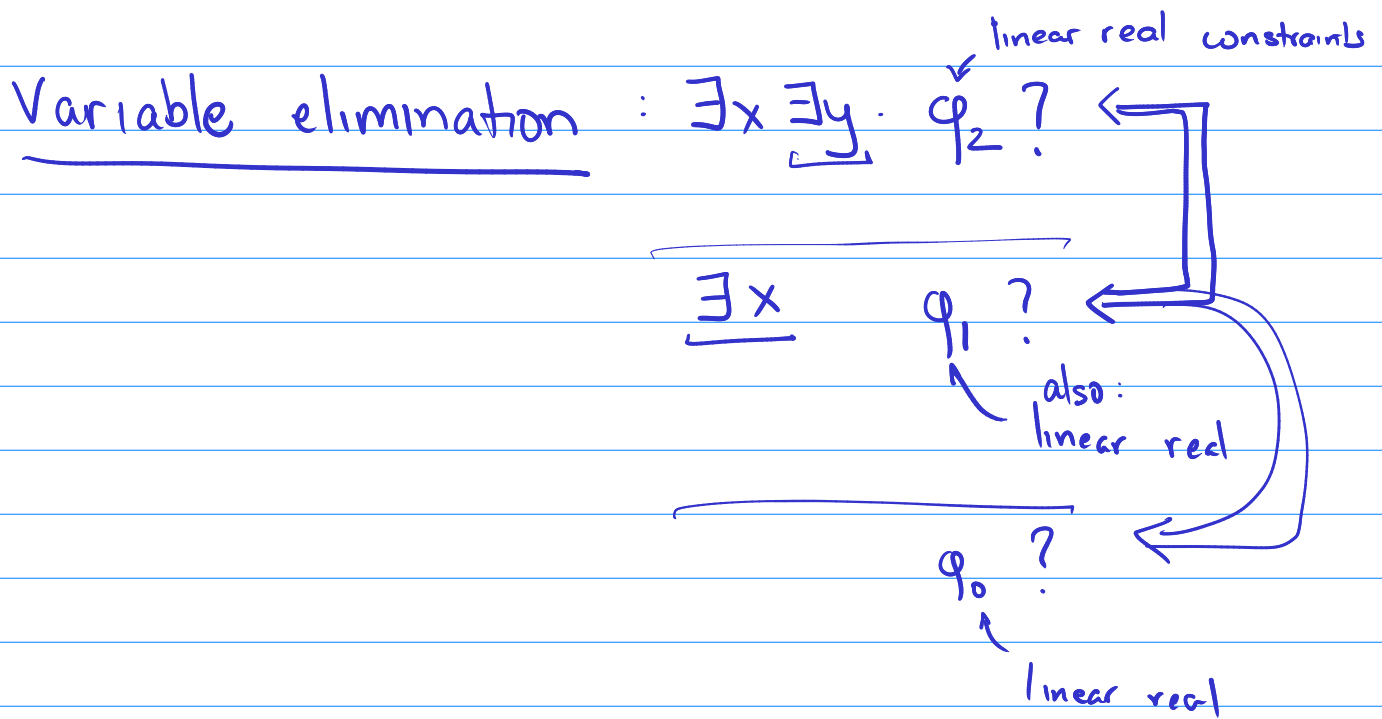 linear real constraints
Variable elimination : ∃x ∃y. φ₂ ?
∃x φ₁ ?
also:
linear real
φ₀ ?
linear real